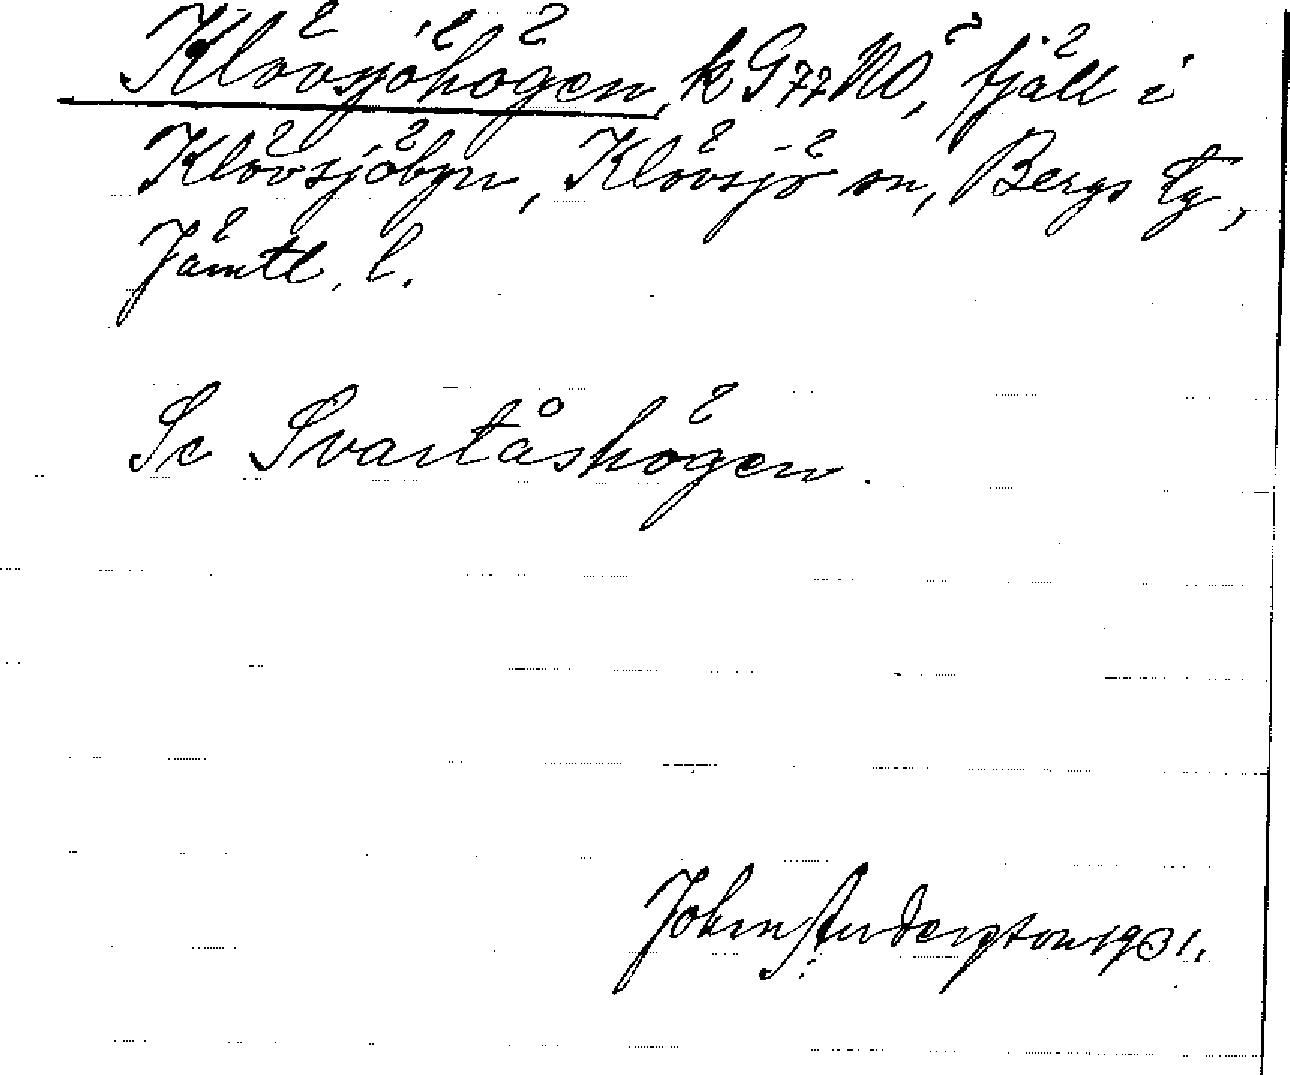 Klövsjöhögen, k G77 NO, fjäll i
Klövsjöbyn, Klövsjö sn, Bergs tg,
Jämtl. l.
Se Svartåshögen.
John Anderston 1931.